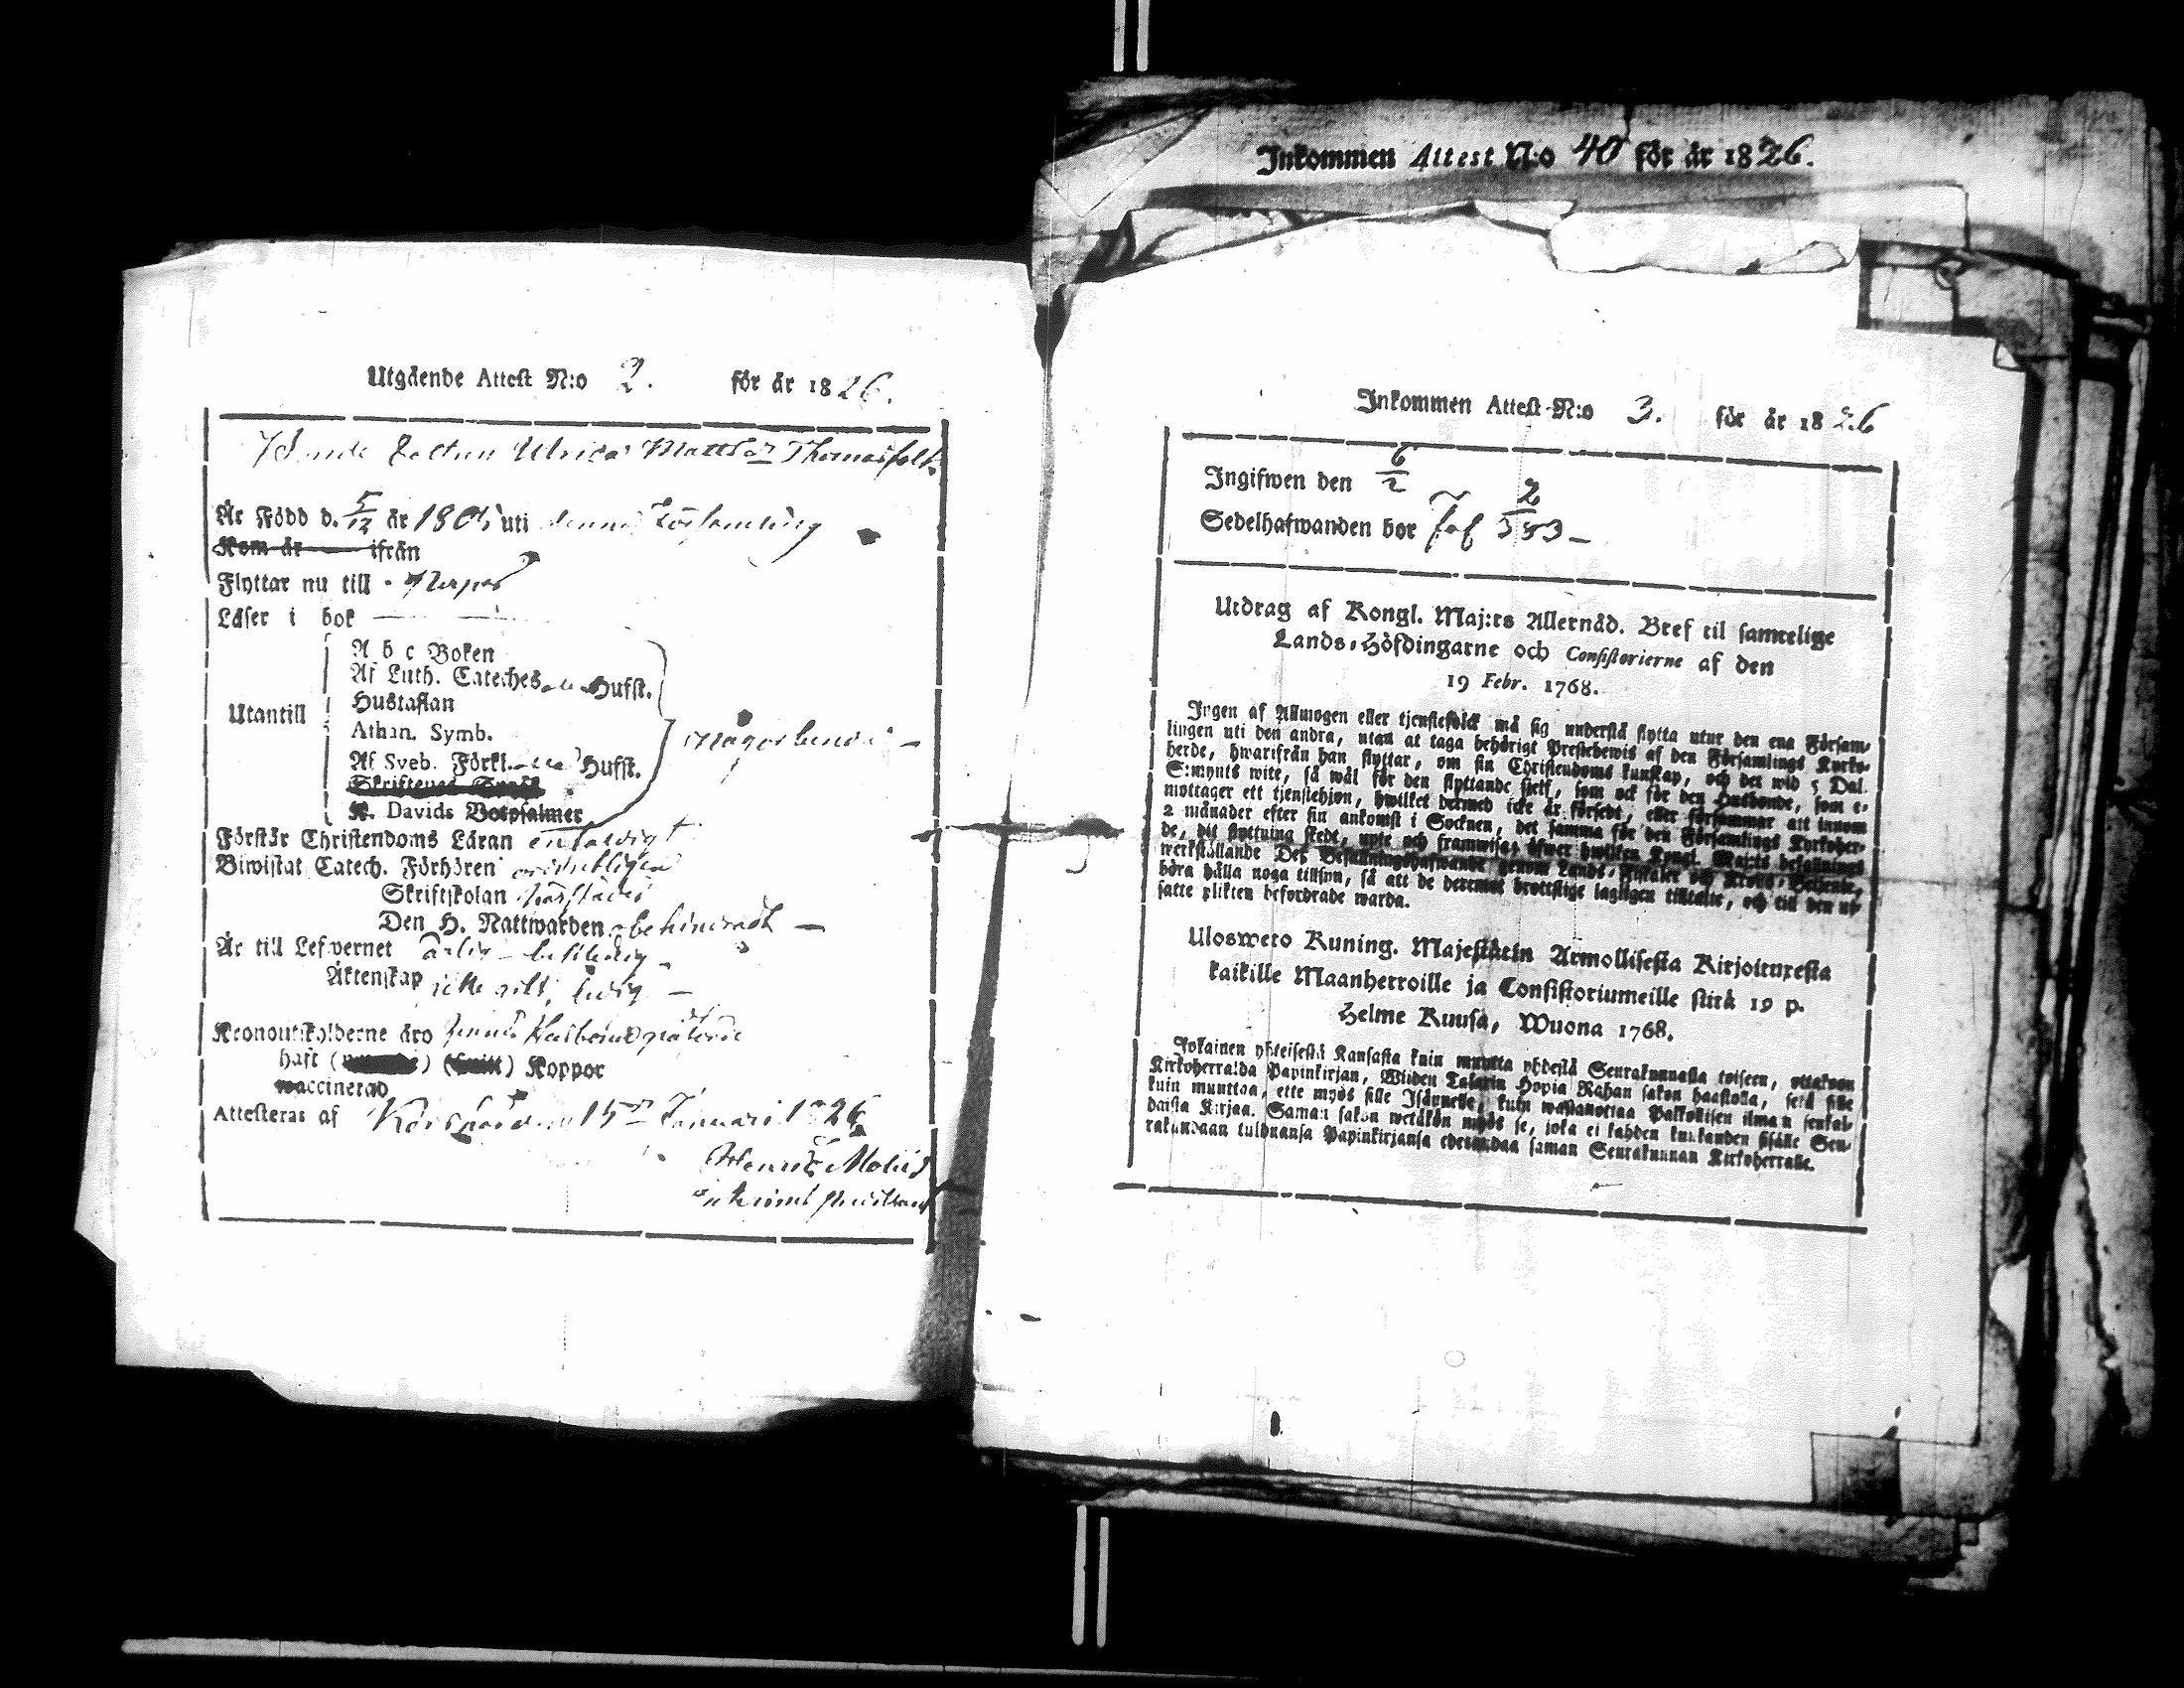 Inkommen Attest N:o 40 för år 1826.
Utgående Attest N:o 2. för år 1826.
Ulrica Matts Thomasfolk
Är Född d. 5/12 år 180 uti denna Församling
Kom år ifrån
Flyttar nu till
Läser i bok
Utantill
A b c Boken
Af Luth. Cateches Hufst.
Hustaflan
Athan. Symb.
Af Sveb. Förkl. Hufst.
K. Davids Botpsalmer
någorlunda
Förstår Christendoms Läran enfaldigt
Biwistat Catech. Förhören
Skriftskolan
Den H. Nattwarden obehindradt
Är till Lefvernet ärlig beskedlig
Äktenskap icke gift, ledig
Kronoutskylderne äro
haft ( ) ( ) Koppor
vaccinerad
Attesteras af 15 Januari 1826
Henric
Inkommen Attest N:o 3. för år 1826
Ingifwen den 6/2
Sedelhafwanden bor 2/383
Utdrag af Kongl. Maj:ts Allernåd. Bref til samtelige
Lands-Höfdingarne och Consistorierne af den
19 Febr. 1768.
Ingen af Allmogen eller tjenstefolck må sig understå flytta utur den ena Försam-
lingen uti den andra, utan at taga behörigt Prestebewis af den Församlings Kyrko-
herde, hwarifrån han flyttar, om sin Christendoms kunskap, och det wid 5 Dal.
S:mynts wite, så wäl för den flyttande sjelf, som ock för den Husbonde, som e-
mottager ett tjenstehjon, hwilket dermed icke är försedt, eller försummar att innom
2 månader efter sin ankomst i Socknen, det samma för den Församlings Kyrkoher-
de, dit flyttning skedt, upte och framwisa; öfwer hwilken Kongl. Maj:ts befallnings
werkställande Des Befallningshafwande genom Lands-Fiskaler och Krono-Betjente,
böra hålla noga tillsyn, så att de deremot brottslige lagligen tilltalte, och till den ut-
satte plikten befordrade warda.
Ulosweto Kuning. Majestätin Armollisesta Kirjoituxesta
kaikille Maanherroille ja Consistoriumeille siitä 19 p.
Helme Kuusa, Wuona 1768.
Jokainen yhteisestä Kansasta kuin muutta yhdestä Seurakunnasta toiseen, ottakoon
Kirkoherralda Papinkirjan, Wiiden Talarin Hopia Rahan sakon haastolla, sekä sille
kuin muuttaa, ette myös sille Isännelle, kuin wastanottaa Palkollisen ilman senkal-
daista Kirjaa. Saman sakon wetäkön myös se, joka ei kahden kuukauden sisälle Seu-
rakundaan tulduansa Papinkirjansa edesandaa saman Seurakunnan Kirkoherralle.